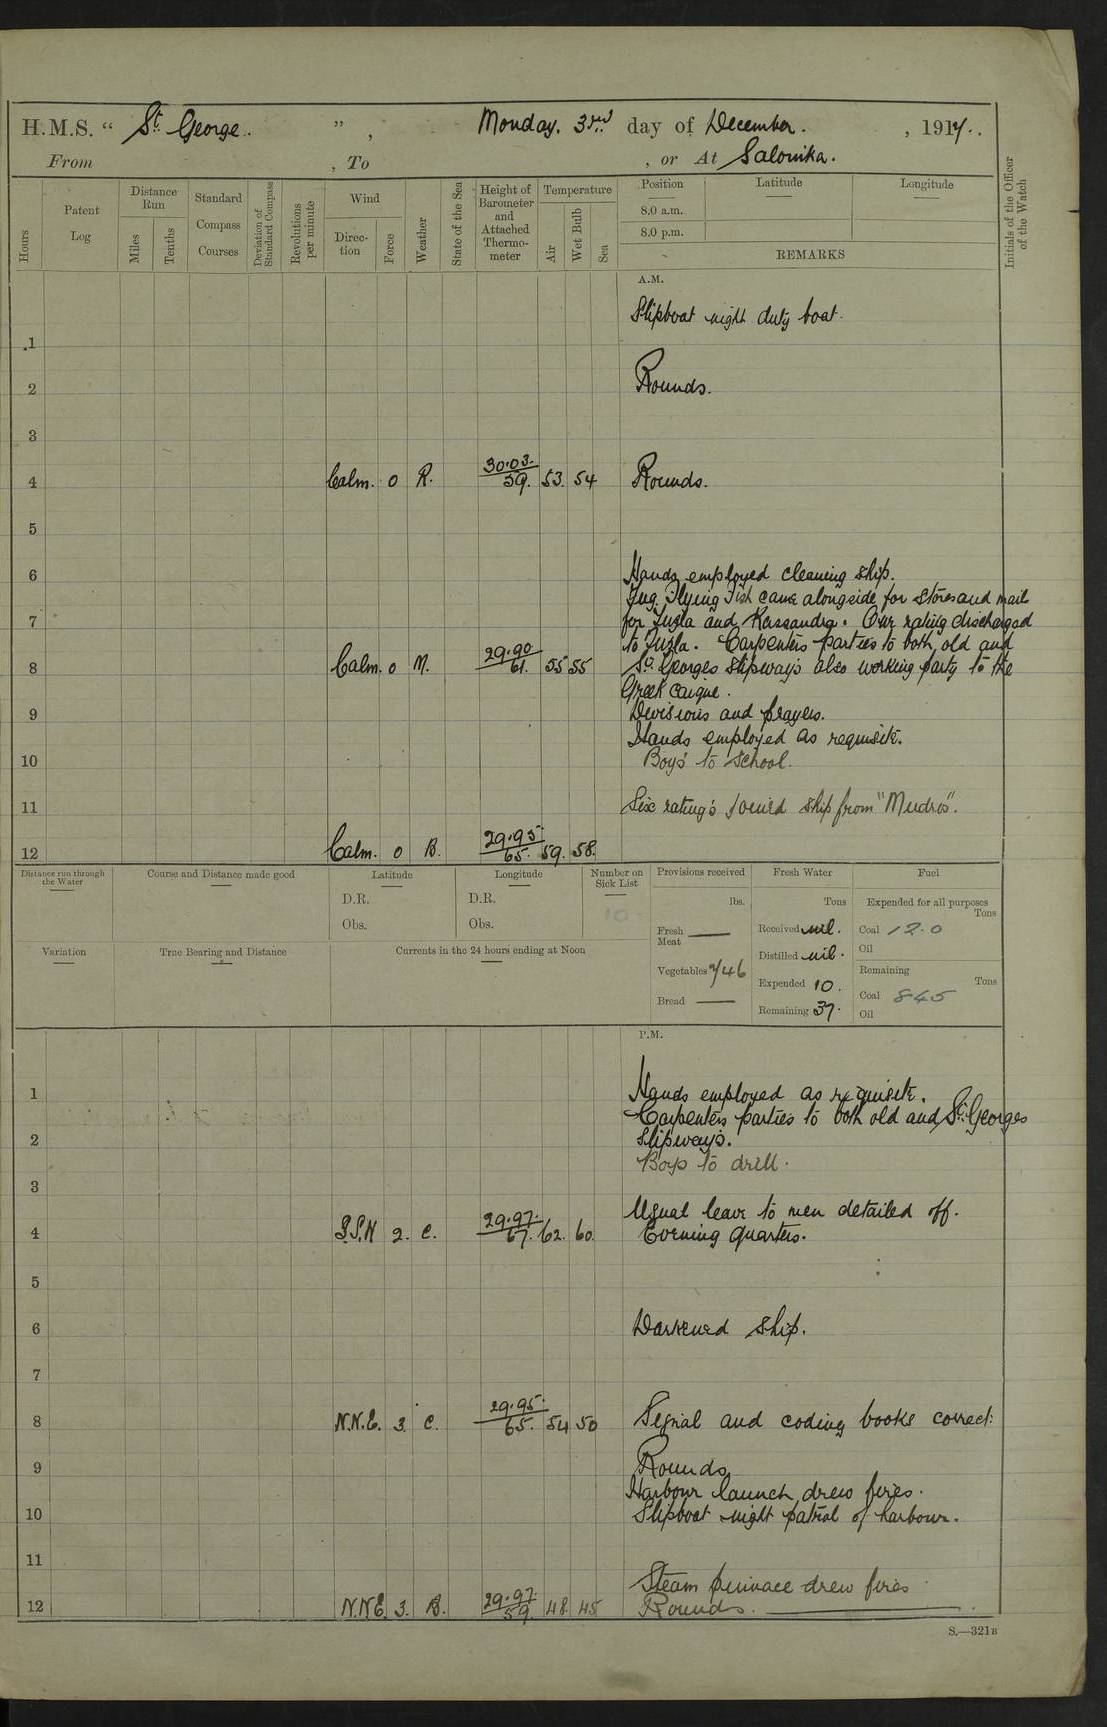 H.M.S. “ St. George. ” , Monday. 3rd day of December. , 1917.
From , To , or At Salonika.
Hours
Patent Log
Distance Run
Miles
Tenths
Standard Compass Courses
Deviation of Standard Compass
Revolutions per minute
Wind
Direc-tion
Force
Weather
State of the Sea
Height of Barometer and Attached Thermo-meter
Temperature
Air
Wet Bulb
Sea
Position Latitude Longitude
8.0 a.m.
8.0 p.m.
REMARKS
Initials of the Officer of the Watch
A.M.
Slipboat night duty boat.
1
Rounds.
2
3
30.03.
4 Calm. 0 R. 59. 53. 54 Rounds.
5
6 Hands employed cleaning ship.
Tug Flying Fish came alongside for stores and mail
7 for Tuzla and Kassandra. One rating discharged
to Tuzla. Carpenters parties to both old and
29.90
8 Calm. 0 M. 61. 55 55 St. Georges slipways also working party to the
Greek caique.
9 Divisions and prayers.
Hands employed as requisite.
10 Boys to school.
11 Six rating's joined ship from "Mudros".
29.95.
12 Calm. 0 B. 65. 59. 58.
Distance run through the Water
Course and Distance made good
Latitude
D.R.
Obs.
Longitude
D.R.
Obs.
Number on Sick List
10
Provisions received
lbs.
Fresh Meat —
Vegetables 746
Bread —
Fresh Water
Tons
Received nil.
Distilled nil.
Expended 10.
Remaining 37.
Fuel
Expended for all purposes
Tons
Coal 12.0
Oil
Remaining
Tons
Coal 845
Oil
Variation
True Bearing and Distance
Currents in the 24 hours ending at Noon
P.M.
1 Hands employed as requisite.
Carpenters parties to both old and St. Georges
2 slipways.
Boys to drill.
3
Usual leave to men detailed off.
29.97.
4 2. C. 67. 62. 60. Evening Quarters.
5
6 Darkened ship.
7
29.95.
8 N.N.E. 3. C. 65. 54 50 Signal and coding books correct.
9 Rounds
Harbour launch drew fires.
10 Slipboat night patrol of harbour.
11
Steam pinnace drew fires
29.97.
12 N.N.E. 3. B. 59. 48 45 Rounds.
S.—321B